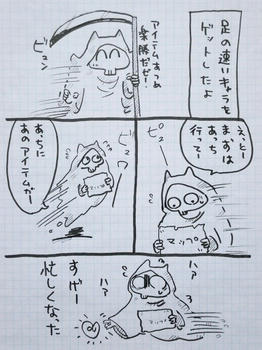 足の速いキャラを
ゲットしたよ
アイテムあつめ
楽勝だぜ!
ビュン
え、とー
まずは
あっち
行ってー
ピュー
マップ
ビュワ
あっちに
あのアイテムがー
マップ
ハァ
ハァ
マップ
すげー
忙しくなった